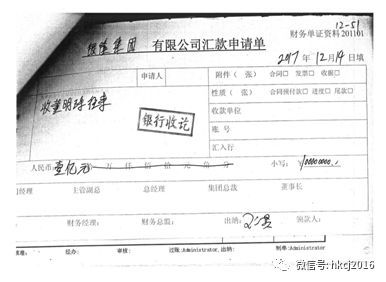 12-51
财务单证资料201101
银隆集团 有限公司汇款申请单
2017年12月19日填
申请人 附件( 张) 合同□ 发票□ 收据□
性质( 张) 合同预付款□ 进度□ 尾款□
收董明珠往来
银行收讫
收款单位
账号
汇入行
人民币:壹亿元 万仟佰拾元角分 小写:¥
经理 主管副总 总经理 集团总裁 董事长
财务经理: 财务总监: 出纳: 领款人:
核准: 经办: 审核: 过账:Administrator,出纳: 制单:Administrator
微信号: hkcj2016